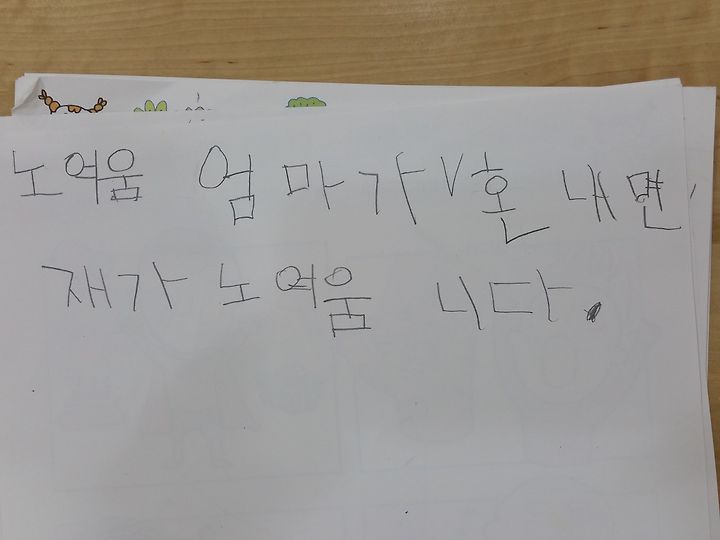 노여움 엄마가 V혼내면
재가 노여움 니다.